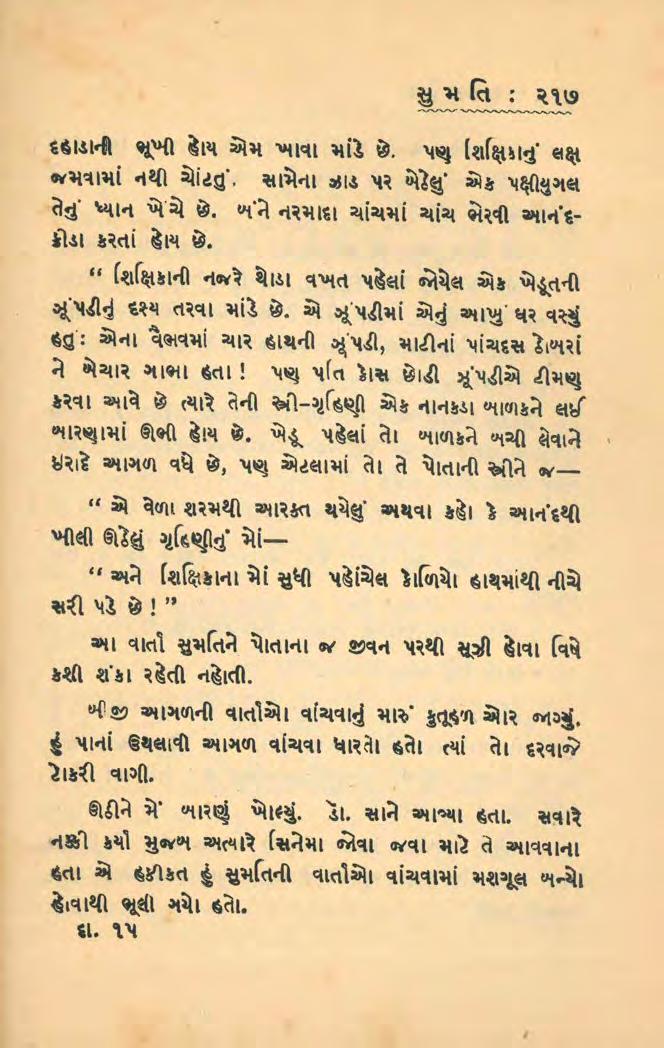 સુ મ તિ : ૨૧૭
દહાડાની ભૂખી હોય એમ ખાવા માંડે છે. પણ શિક્ષિકાનું લક્ષ
જમવામાં નથી ચોંટતું. સામેના ઝાડ પર બેઠેલું એક પક્ષીયુગલ
તેનું ધ્યાન ખેંચે છે. બંને નરમાદા ચાંચમાં ચાંચ ભેરવી આનંદ-
ક્રીડા કરતાં હોય છે.
“ શિક્ષિકાની નજરે થોડા વખત પહેલાં જોયેલ એક ખેડૂતની
ઝૂંપડીનું દૃશ્ય તરવા માંડે છે. એ ઝૂંપડીમાં એનું આખું ઘર વસ્યું
હતું: એના વૈભવમાં ચાર હાથની ઝૂંપડી, માટીનાં પાંચદસ ઠોબરાં
ને બેચાર ગાભા હતા! પણ પતિ કોસ છોડી ઝૂંપડીએ ટીમણ
કરવા આવે છે ત્યારે તેની સ્ત્રી-ગૃહિણી એક નાનકડા બાળકને લઈ
બારણામાં ઊભી હોય છે. ખેડૂ પહેલાં તો બાળકને બચી લેવાને
ઇરાદે આગળ વધે છે, પણ એટલામાં તો તે પોતાની સ્ત્રીને જ—
“ એ વેળા શરમથી આરક્ત થયેલું અથવા કહો કે આનંદથી
ખીલી ઊઠેલું ગૃહિણીનું મોં—
“ અને શિક્ષિકાના મોં સુધી પહોંચેલ કોળિયો હાથમાંથી નીચે
સરી પડે છે! ”
આ વાર્તા સુમતિને પોતાના જ જીવન પરથી સૂઝી હોવા વિષે
કશી શંકા રહેતી નહોતી.
બીજી આગળની વાર્તાઓ વાંચવાનું મારું કુતૂહળ ઓર જાગ્યું.
હું પાનાં ઉથલાવી આગળ વાંચવા ધારતો હતો ત્યાં તો દરવાજે
ટોકરી વાગી.
ઊઠીને મેં બારણું ખોલ્યું. ડૉ. સાને આવ્યા હતા. સવારે
નક્કી કર્યા મુજબ અત્યારે સિનેમા જોવા જવા માટે તે આવવાના
હતા એ હકીકત હું સુમતિની વાર્તાઓ વાંચવામાં મશગૂલ બન્યો
હોવાથી ભૂલી ગયો હતો.
દા. ૧૫